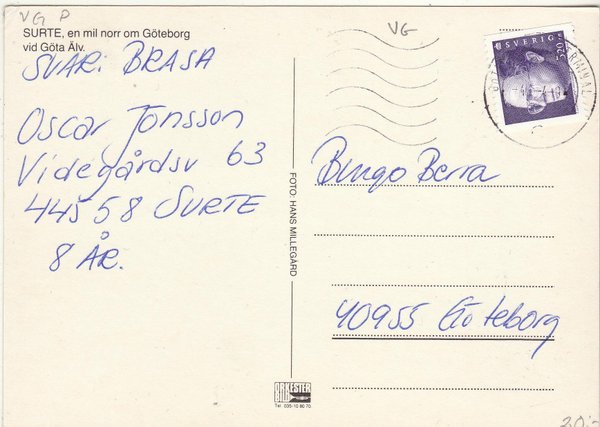 VG P
VG
SURTE, en mil norr om Göteborg
vid Göta Älv.
SVAR: BRASA
Oscar Jonsson
Videgårdsv 63
44558 SURTE
8 ÅR.
SVERIGE
FOTO HANS MILLEGÅRD
Bingo Berra
40955 Göteborg
Tel. 035-10 80 70
20:-